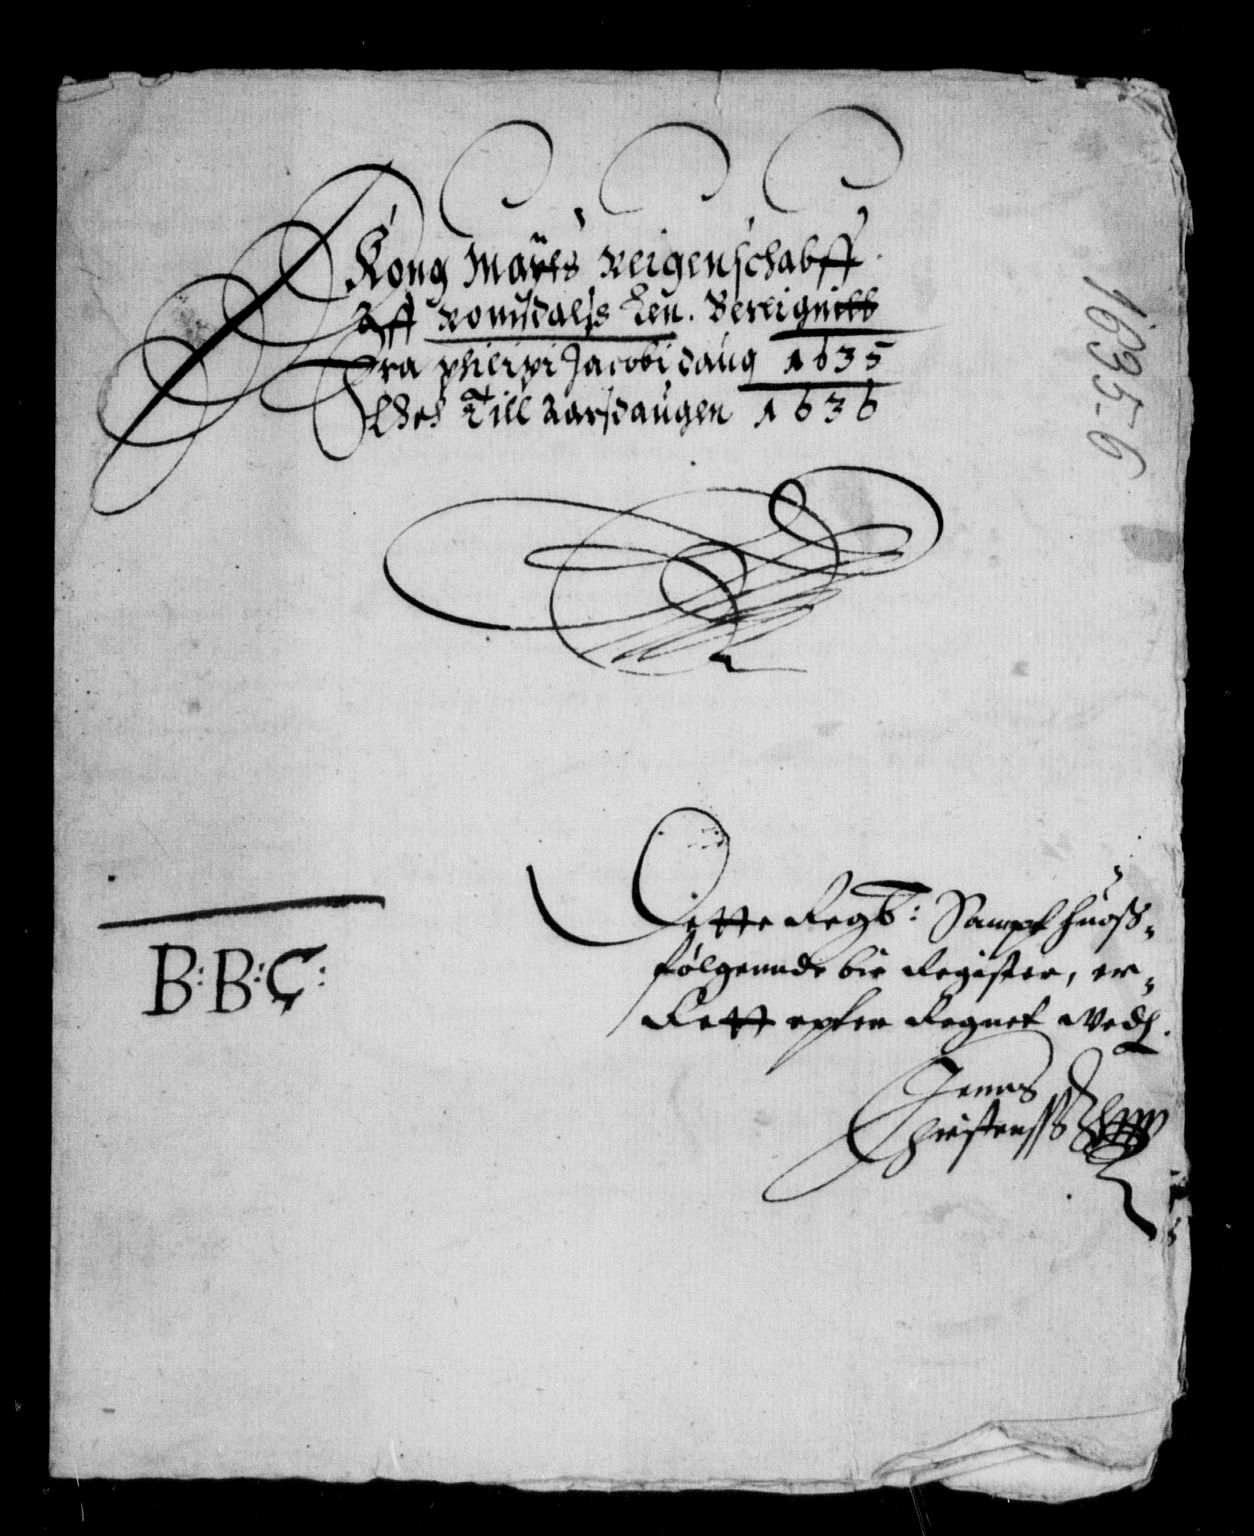 Kong Mayts Reigenschabff
Aff Romsdalss Len. Bereignitt
Fra philipi Jacobi daug 1635
Och Till Aarsdaugen 1636
1635-6
B: B: C:
Dette Regb: Sampt huoss-
følgennde bie Register, er-
Rett epter Regnet wedh.
Jenns
Christenss